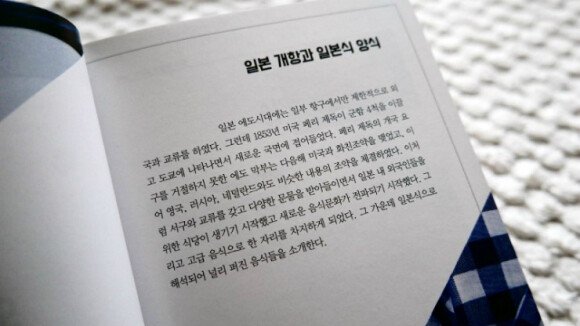 일본 개항과 일본식 양식
일본 에도시대에는 일부 항구에서만 제한적으로 외
국과 교류를 하였다. 그런데 1853년 미국 페리 제독이 군함 4척을 이끌
고 도쿄에 나타나면서 새로운 국면에 접어들었다. 페리 제독의 개국 요
구를 거절하지 못한 에도 막부는 다음해 미국과 화친조약을 맺었고, 이
어 영국, 러시아, 네덜란드와도 비슷한 내용의 조약을 체결하였다. 이처
럼 서구와 교류를 갖고 다양한 문물을 받아들이면서 일본 내 외국인들을
위한 식당이 생기기 시작했고 새로운 음식문화가 전파되기 시작했다. 그
리고 고급 음식으로 한 자리를 차지하게 되었다. 그 가운데 일본식으로
해석되어 널리 퍼진 음식들을 소개한다.